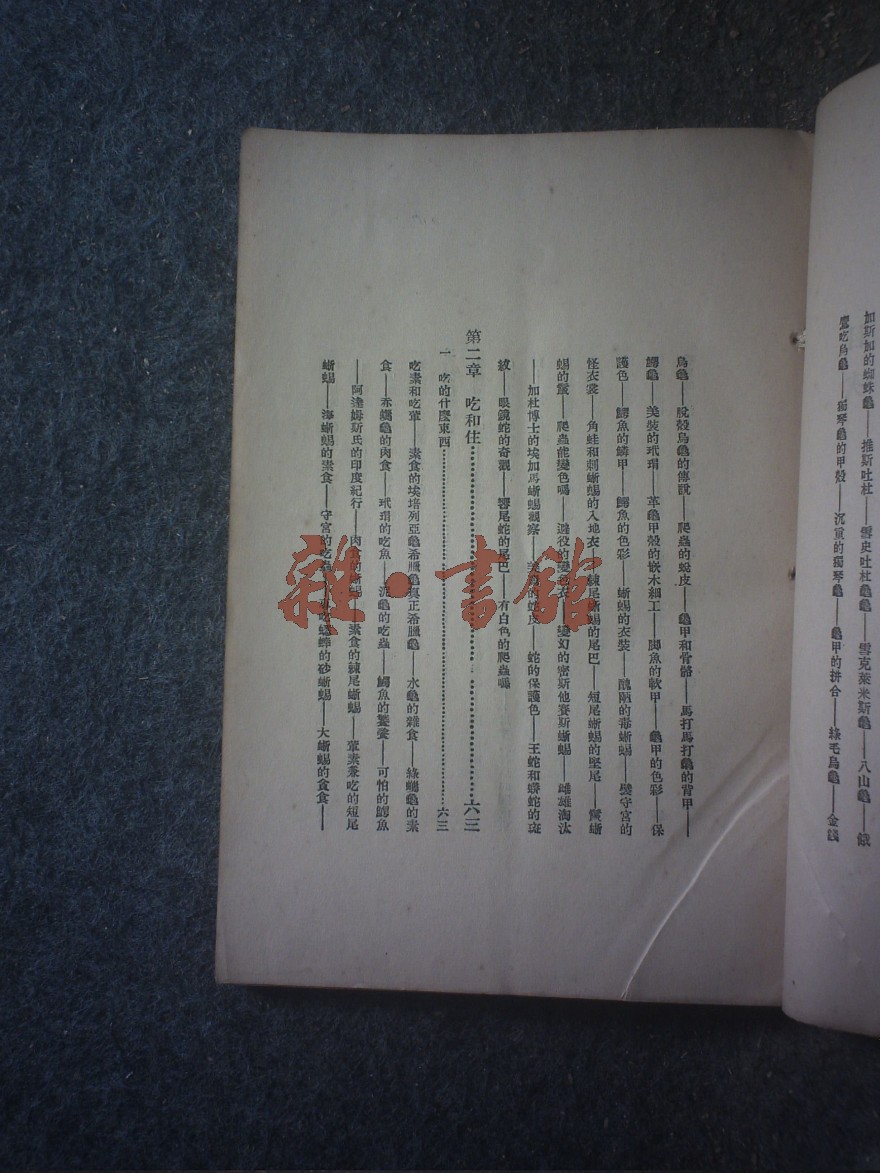 加斯加的蜘蛛龜——推斯吐杜——雪史吐杜龜龜——雪克萊米斯龜——八山龜——餓
鷺吃烏龜——獨琴龜的甲殼——沉重的獨琴龜——龜甲的拼合——綠毛烏龜——金錢
烏龜——脫殼烏龜的傳說——爬蟲的蛻皮——龜甲和骨骼——馬打馬打龜的背甲——
鱷龜——美裝的玳瑁——革龜甲殼的嵌木細工——脚魚的軟甲——龜甲的色彩——保
護色——鱷魚的鱗甲——鱷魚的色彩——蜥蜴的衣裝——醜陋的毒蜥蜴——襞守宮的
怪衣裳——角蛙和刺蜥蜴的入地衣——棘尾蜥蜴的尾巴——短尾蜥蜴的堅尾——鬣蜥
蜴的鬣——爬蟲能變色嗎——避役的變色衣——變幻的密斯他賽斯蜥蜴——雌雄淘汰
——加杜博士的埃加馬蜥蜴觀察——美麗的蛇皮——蛇的保護色——王蛇和蟒蛇的斑
紋——眼鏡蛇的奇觀——響尾蛇的尾巴——有白色的爬蟲嗎
第二章 吃和住……六三
一 吃的什麼東西……六三
吃素和吃葷——素食的埃培列亞龜希臘龜真正希臘龜——水龜的雜食——綠蠵龜的素
食——赤蠵龜的肉食——玳瑁的吃魚——泥龜的吃蟲——鱷魚的饕餮——可怕的鱷魚
——阿達姆斯氏的印度紀行——肉食的蜥蜴——素食的棘尾蜥蜴——葷素兼吃的短尾
蜥蜴——海蜥蜴的素食——守宮的吃蟲——吃蟋蟀的砂蜥蜴——大蜥蜴的貪食——
雜·書館